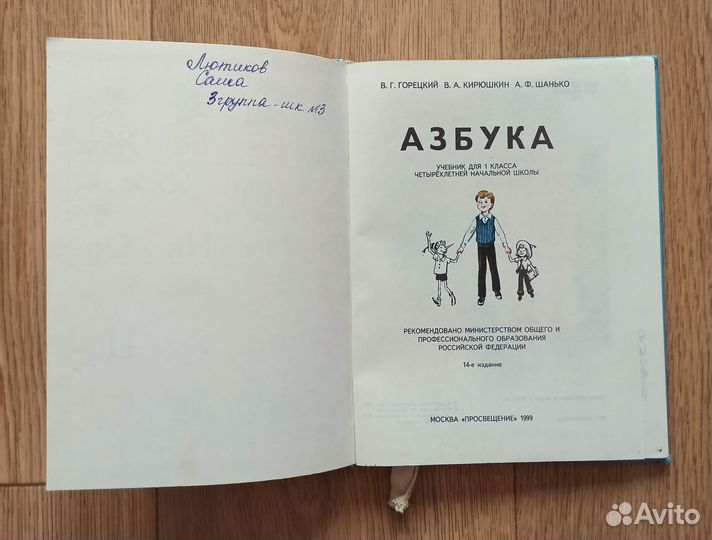 Лютиков
Саша
3 группа - шк. №3
В. Г. ГОРЕЦКИЙ В. А. КИРЮШКИН А. Ф. ШАНЬКО
АЗБУКА
УЧЕБНИК ДЛЯ 1 КЛАССА
ЧЕТЫРЁХЛЕТНЕЙ НАЧАЛЬНОЙ ШКОЛЫ
РЕКОМЕНДОВАНО МИНИСТЕРСТВОМ ОБЩЕГО И
ПРОФЕССИОНАЛЬНОГО ОБРАЗОВАНИЯ
РОССИЙСКОЙ ФЕДЕРАЦИИ
14-е издание
МОСКВА «ПРОСВЕЩЕНИЕ» 1999
Avito